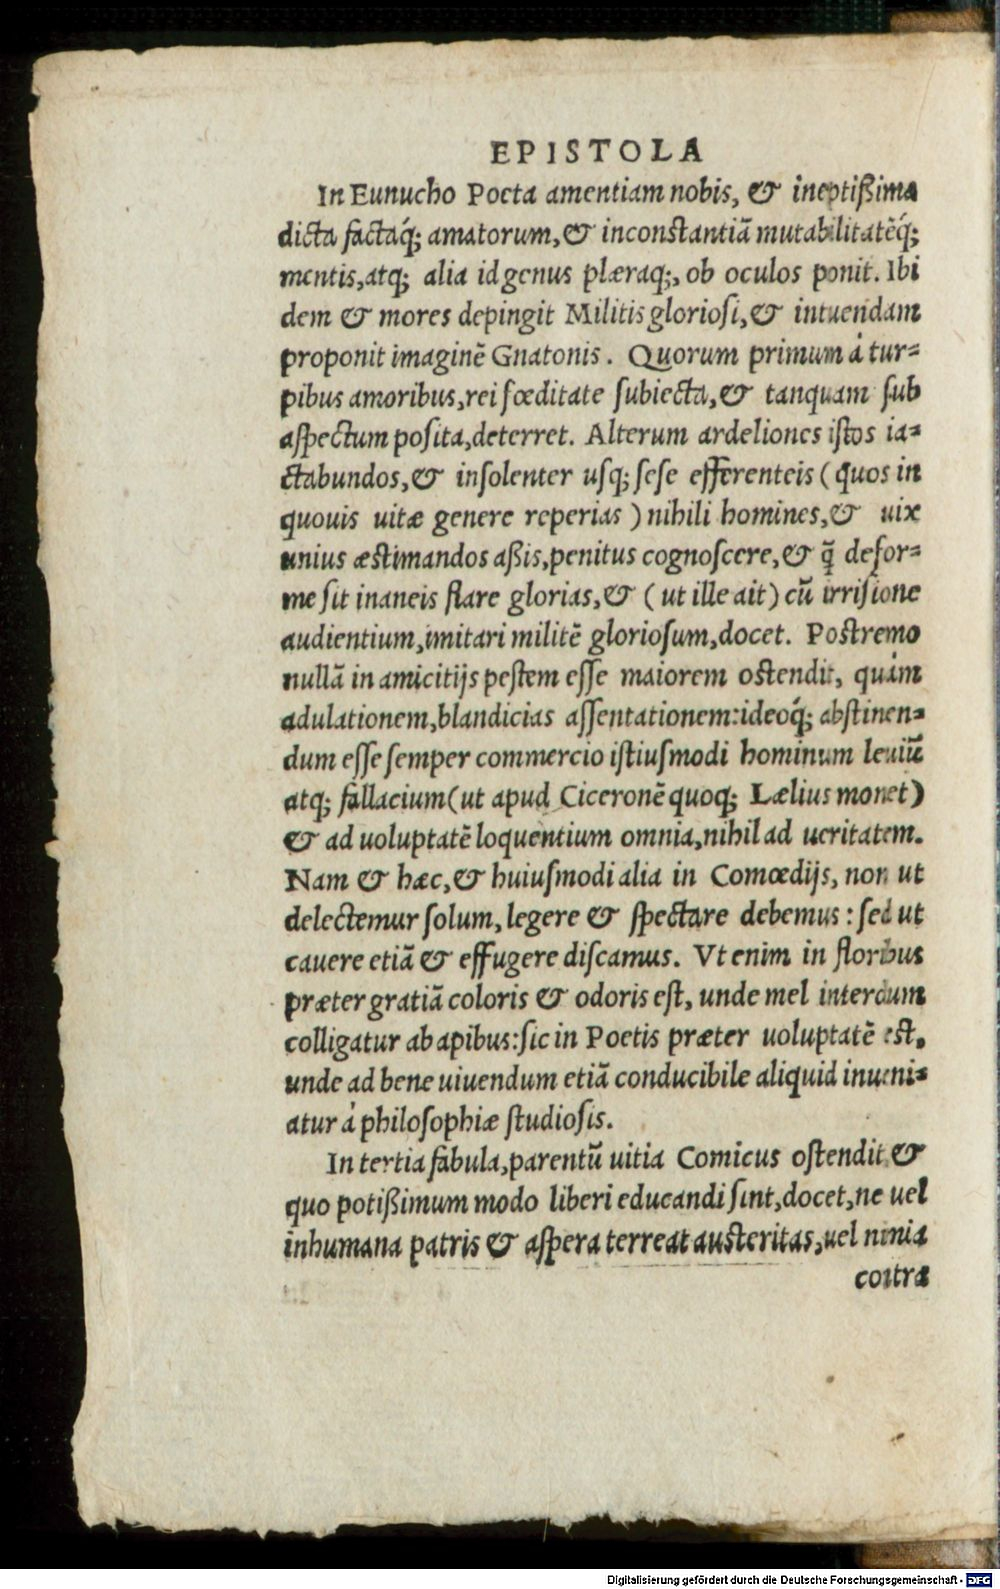 EPISTOLA
In Eunucho Poeta amentiam nobis, & ineptißima
dicta factaq́;, amatorum, & inconstantiā mutabilitatēq́;
mentis, atq; alia id genus plæraq;, ob oculos ponit. Ibi
dem & mores depingit Militis gloriosi, & intuendam
proponit imaginē Gnatonis. Quorum primum à tur-
pibus amoribus, rei fœditate subiecta, & tanquam sub
aspectum posita, deterret. Alterum ardeliones istos ia-
ctabundos, & insolenter usq; sese efferenteis (quos in
quouis uitæ genere reperias) nihili homines, & uix
unius æstimandos aßis, penitus cognoscere, & q̄ defor-
me sit inaneis flare glorias, & (ut ille ait) cū irrisione
audientium, imitari militē gloriosum, docet. Postremo
nullā in amicitijs pestem esse maiorem ostendit, quàm
adulationem, blandicias assentationem: ideoq́; abstinen-
dum esse semper commercio istiusmodi hominum leuiū
atq; fallacium (ut apud Ciceronē quoq; Lælius monet)
& ad uoluptatē loquentium omnia, nihil ad ueritatem.
Nam & hæc, & huiusmodi alia in Comœdijs, non ut
delectemur solum, legere & spectare debemus: sed ut
cauere etiā & effugere discamus. Vt enim in floribus
præter gratiā coloris & odoris est, unde mel interdum
colligatur ab apibus: sic in Poetis præter uoluptatē est,
unde ad bene uiuendum etiā conducibile aliquid inueni-
atur à philosophiæ studiosis.
In tertia fabula, parentū uitia Comicus ostendit &
quo potißimum modo liberi educandi sint, docet, ne uel
inhumana patris & aspera terreat austeritas, uel nimia
contra
Digitalisierung gefördert durch die Deutsche Forschungsgemeinschaft - DFG